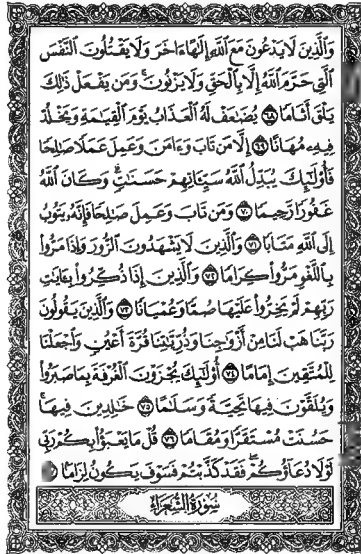 وَٱلَّذِينَ لَا يَدْعُونَ مَعَ ٱللَّهِ إِلَٰهًا ءَاخَرَ وَلَا يَقْتُلُونَ ٱلنَّفْسَ
ٱلَّتِي حَرَّمَ ٱللَّهُ إِلَّا بِٱلْحَقِّ وَلَا يَزْنُونَ ۚ وَمَن يَفْعَلْ ذَٰلِكَ
يَلْقَ أَثَامًا ٦٨ يُضَٰعَفْ لَهُ ٱلْعَذَابُ يَوْمَ ٱلْقِيَٰمَةِ وَيَخْلُدْ
فِيهِۦ مُهَانًا ٦٩ إِلَّا مَن تَابَ وَءَامَنَ وَعَمِلَ عَمَلًا صَٰلِحًا
فَأُو۟لَٰٓئِكَ يُبَدِّلُ ٱللَّهُ سَيِّـَٔاتِهِمْ حَسَنَٰتٍ ۗ وَكَانَ ٱللَّهُ
غَفُورًا رَّحِيمًا ٧٠ وَمَن تَابَ وَعَمِلَ صَٰلِحًا فَإِنَّهُۥ يَتُوبُ
إِلَى ٱللَّهِ مَتَابًا ٧١ وَٱلَّذِينَ لَا يَشْهَدُونَ ٱلزُّورَ وَإِذَا مَرُّوا۟
بِٱللَّغْوِ مَرُّوا۟ كِرَامًا ٧٢ وَٱلَّذِينَ إِذَا ذُكِّرُوا۟ بِـَٔايَٰتِ
رَبِّهِمْ لَمْ يَخِرُّوا۟ عَلَيْهَا صُمًّا وَعُمْيَانًا ٧٣ وَٱلَّذِينَ يَقُولُونَ
رَبَّنَا هَبْ لَنَا مِنْ أَزْوَٰجِنَا وَذُرِّيَّٰتِنَا قُرَّةَ أَعْيُنٍ وَٱجْعَلْنَا
لِلْمُتَّقِينَ إِمَامًا ٧٤ أُو۟لَٰٓئِكَ يُجْزَوْنَ ٱلْغُرْفَةَ بِمَا صَبَرُوا۟
وَيُلَقَّوْنَ فِيهَا تَحِيَّةً وَسَلَٰمًا ٧٥ خَٰلِدِينَ فِيهَا ۚ
حَسُنَتْ مُسْتَقَرًّا وَمُقَامًا ٧٦ قُلْ مَا يَعْبَؤُا۟ بِكُمْ رَبِّي
لَوْلَا دُعَآؤُكُمْ ۖ فَقَدْ كَذَّبْتُمْ فَسَوْفَ يَكُونُ لِزَامًا
سُورَةُ الشُّعَرَاءِ